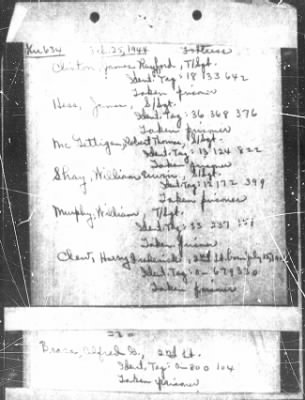 Ku 634 Feb. 25, 1944 Fortress
Clinton, James Rayford, T/Sgt.
Ident. Tag: 18 133 642
Taken prisoner
Hess, James, S/Sgt.
Ident. Tag: 36 368 376
Taken prisoner
Mc Gettigan, Robert Thomas, S/Sgt.
Ident. Tag: 13 124 822
Taken prisoner
Shay, William Erwin, S/Sgt.
Ident. Tag: 12 172 399
Taken prisoner
Murphy, William T/Sgt.
Ident. Tag: 33 237
Taken prisoner
Clew, Harry Frederick, 2nd Lt.
Ident. Tag: O-679330
Taken prisoner
Alfred G., 2nd Lt.
Ident. Tag: O-800 104
Taken prisoner